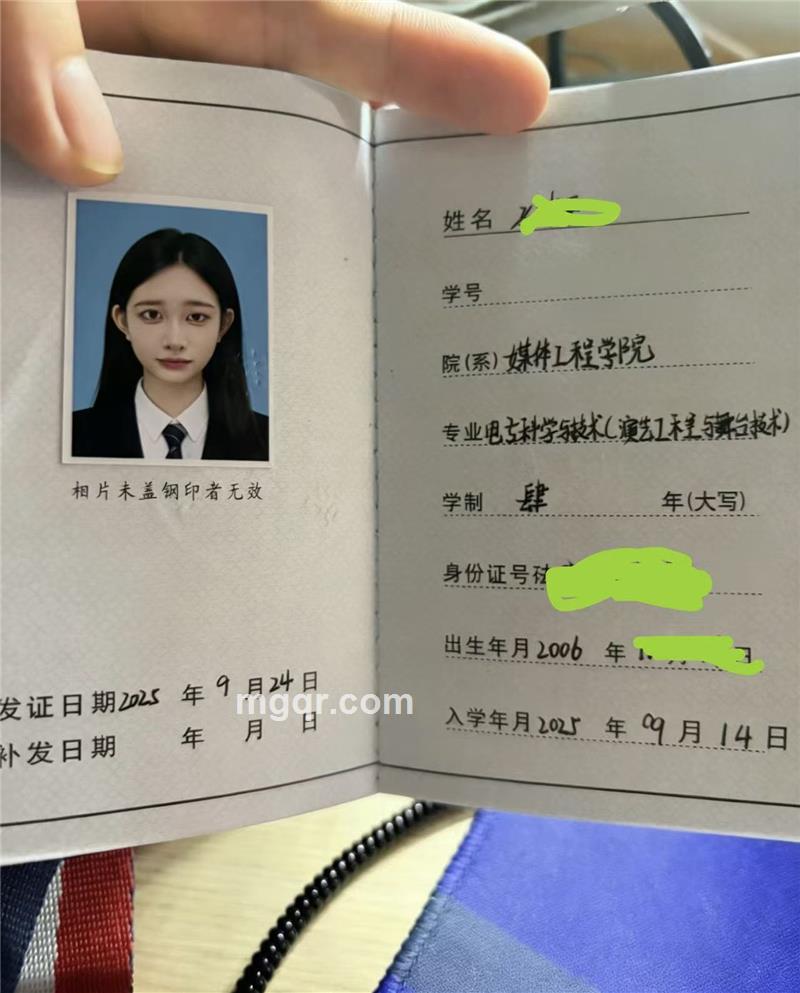 相片未盖钢印者无效
发证日期2025 年 9 月 24 日
补发日期 年 月 日
姓名
学号
院(系) 媒体工程学院
专业 电子科学与技术(演艺工程与舞台技术)
学制 肆 年(大写)
身份证号码
出生年月 2006 年 月 日
入学年月 2025 年 09 月 14 日
mgqr.com